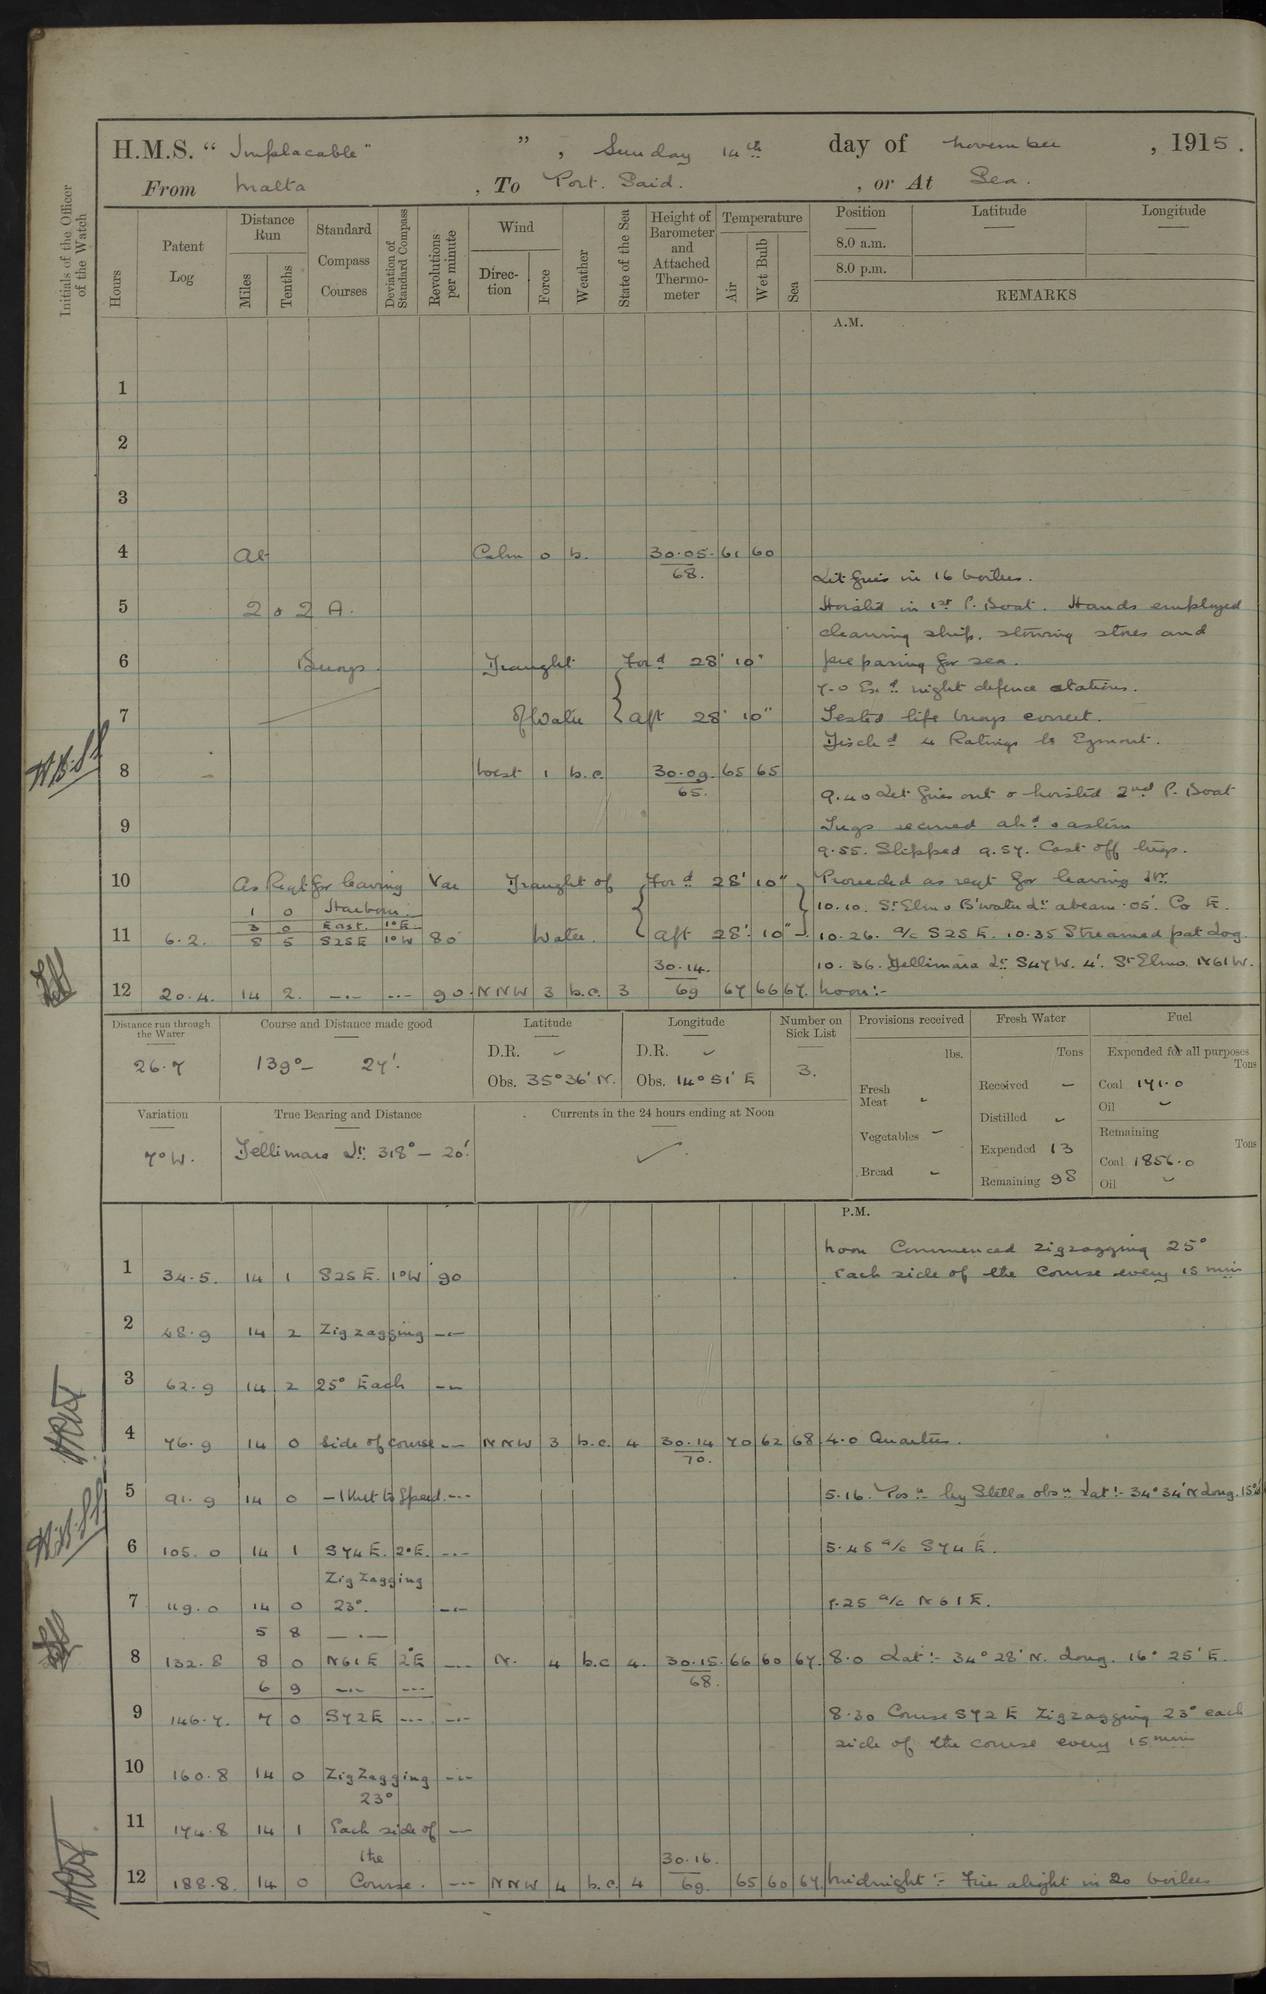 H.M.S. "Implacable" ", Sunday 14th day of November, 1915.
From Malta, To Port Said., or At Sea.
Initials of the Officer of the Watch
Hours Patent Log Distance Run Miles Tenths Standard Compass Courses Deviation of Standard Compass Revolutions per minute Wind Direction Force Weather State of the Sea Height of Barometer and Attached Thermometer Temperature Air Wet Bulb Sea Position 8.0 a.m. 8.0 p.m. Latitude Longitude
REMARKS
A.M.
1
2
3
4 At Calm 0 b. 30.05. 61 60
68. Lit fires in 16 boilers.
5 2 & 2 A. Hoisted in 1st P. Boat. Hands employed
cleaning ship, stowing stores and
6 Buoys Draught For'd 28' 10" preparing for sea.
7.0 Ex'd night defence stations.
7 of Water aft 28' 10" Tested life buoys correct.
Disch'd 4 Ratings to Egmont.
8 West 1 b.c. 30.09. 65 65
65. 9.40 Let fires out & hoisted 2nd P. Boat
9 Tugs secured ah'd & astern
9.55. Slipped 9.57. Cast off tugs.
10 As Reqt for leaving Var Draught of For'd 28' 10" Proceeded as reqt for leaving Hr
1 0 Harbour. 10.10. St Elmo B'water Lt abeam .05'. Co E.
3 0 East. 1°E.
11 6.2. 8 5 S25E 1°W 80 Water. aft 28' 10" 10.26. a/c S25E. 10.35 Streamed pat Log.
30.14. 10.36. Dellimara Lt S47W. 4'. St Elmo. N61W.
12 20.4. 14 2. —.— —.— 90. NNW 3 b.c. 3 69 67 66 67. Noon:-
Distance run through the Water Course and Distance made good Latitude Longitude Number on Sick List Provisions received Fresh Water Fuel
26.7 139°— 27'. D.R. D.R. 3. lbs. Tons Expended for all purposes Tons
Obs. 35°36' N. Obs. 14°51' E Fresh Meat Received — Coal 171.0
Oil
Variation True Bearing and Distance Currents in the 24 hours ending at Noon Distilled Remaining Tons
7°W. Dellimara Lt. 318° — 20'. Vegetables Expended 13 Coal 1856.0
Bread Remaining 98 Oil
P.M.
Noon Commenced zigzagging 25°
1 34.5. 14 1 S25E. 1°W 90 each side of the Course every 15 min
2 48.9 14 2 Zigzagging —.—
3 62.9 14 2 25° Each —.—
4 76.9 14 0 side of course —.— NNW 3 b.c. 4 30.14 70 62 68 4.0 Quarters.
70.
5 91.9 14 0 —1 Knt to Speed —.— 5.16. Posn by Stella obsn Lat:- 34°34'N Long. 15°
6 105.0 14 1 S74E. 2°E. —.— 5.45 a/c S74E.
Zig Zagging
7 119.0 14 0 23°. —.— 7.25 a/c N61E.
5 8 —.—
8 132.8 8 0 N61E 2°E —.— N. 4 b.c 4. 30.15. 66 60 67. 8.0 Lat:- 34°28' N. Long. 16° 25' E.
6 9 —.— —.— 68.
9 146.7. 7 0 S72E —.— —.— 8.30 Course S72E Zigzagging 23° each
side of the course every 15 min
10 160.8 14 0 ZigZagging —.—
23°
11 174.8 14 1 Each side of —
the 30.16.
12 188.8. 14 0 Course. —.— NNW 4 b.c. 4 69. 65 60 67. Midnight:- Fires alight in 20 boilers